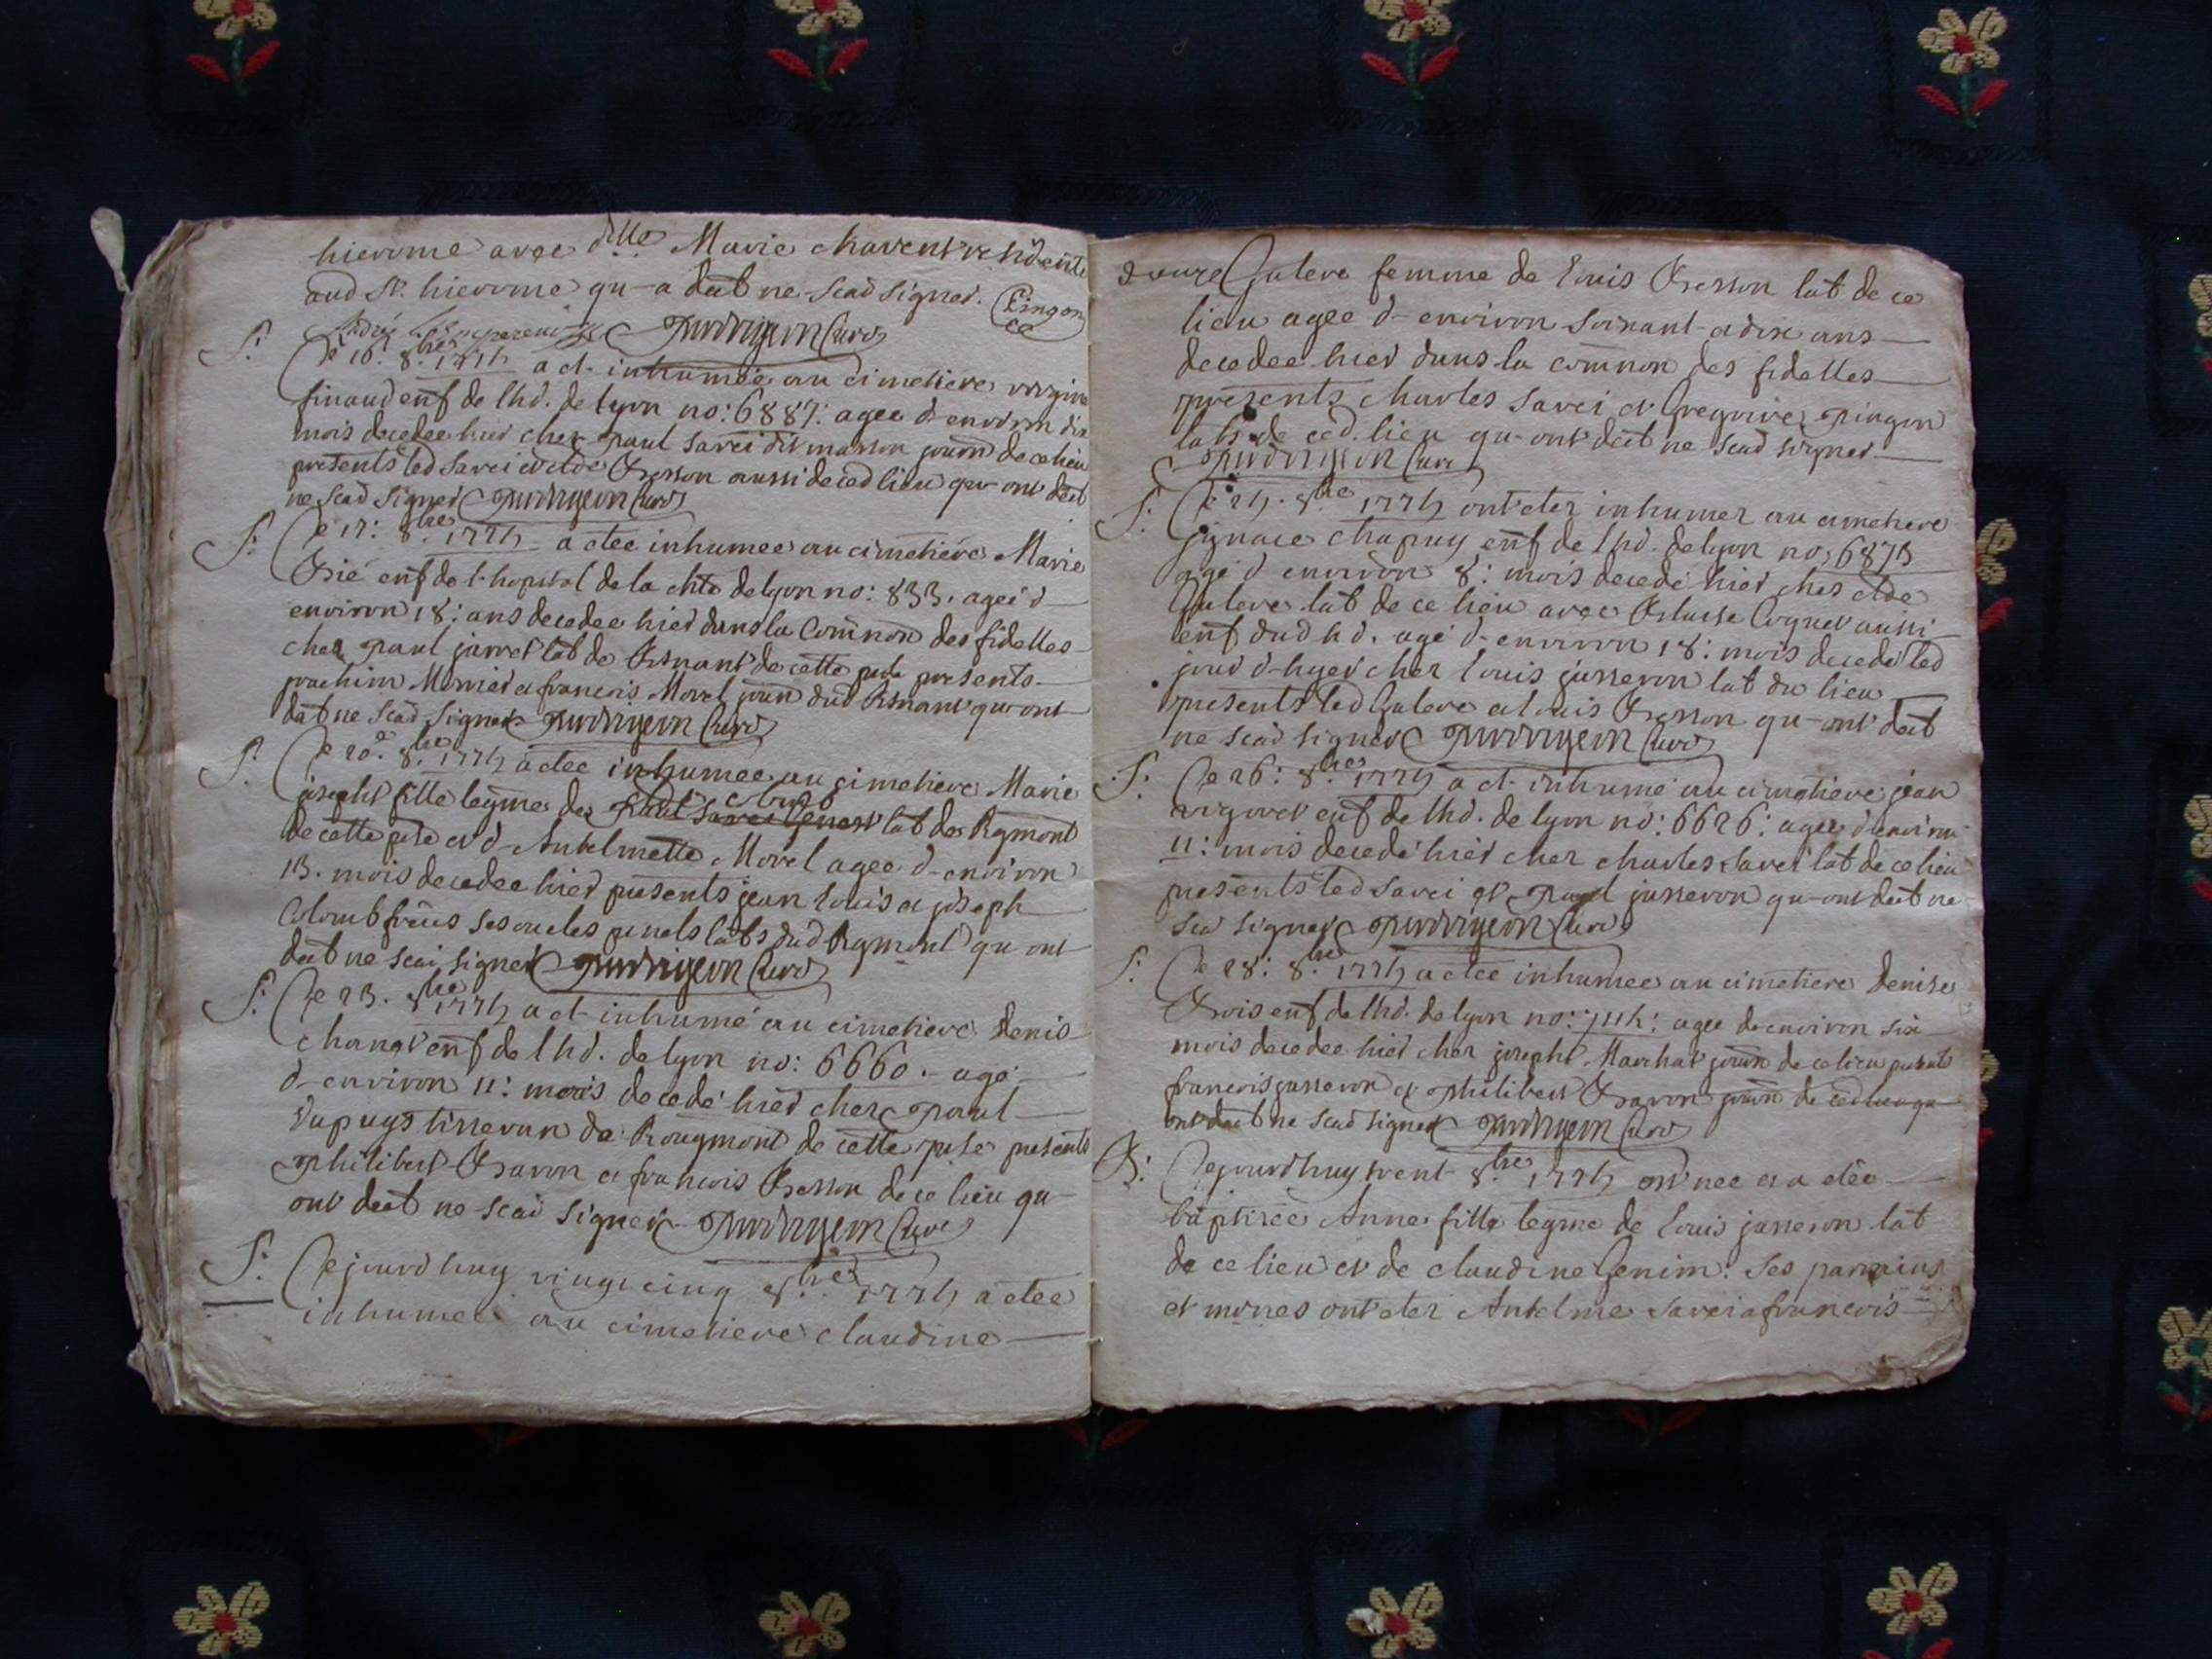 hierome avec dlle Marie charent residente
aud St. hierome qu-a deёt ne scad signer. Pingon
curé
S: Ce 16: 8bre 1774 a et inhumée au cimetiére
finaud enf de lhd. de lyon no: 6887: agee d-environ dix
mois decedee hier chez paul Savei dit masson journ de ce lieu
presents led Savei et Besson aussi de ced lieu qu-ont deёt
ne scad signer curé
S: Ce 17: 8bre 1774 a etee inhumee au cimetiére Marie
enf de l-hopital de la chte de lyon no: 833. ageé d-
environ 18: ans decedee hier dans la Comnon des fidelles
chez paul jarret lab de de cette pse presents
joachim Monier et francois Morel journ dud qu-ont
deёt ne scad signer curé
S: Ce 20e 8bre 1774 a etee inhumée au cimetiere Marie
joseph fille legme de lab de Rgmont
de cette pse et d-Antelmette Morel agee d-environ
13. mois decedee hier presents jean louis et joseph
Colomb freres ses oncles labs dud Rgmont qu ont
deёt ne scai signer curé
S: Ce 23. 8bre 1774 a et inhumé au cimetiere Denis
chanet enf de lhd. de lyon no: 6660. agé
d-environ 11: mois decedé hier chez paul
Dupuys tisseran de Rougmont de cette pse presents
philibert Bavon et francois Besson de ce lieu qu-
ont deёt ne scad signer curé
S: Cejourdhuy vingt cinq 8bre 1774 a etee
inhumee au cimetiere claudine
Guleve femme de louis Besson lab de ce
lieu agee d-environ soixant-a dix ans
decedee hier dans la comnon des fidelles
presents charles Savei et Gregoire pingon
labs de ced. lieu qu-ont deёt ne scad signer
curé
S: Ce 24. 8bre 1774 ont eter inhumer au cimetiere
jgnace chapuy enf de lhd. de lyon no: 6873
agé d environ 8: mois decedé hier chez
Guleve lab de ce lieu avec Coquet aussi
enf dud hd. agé d-environ 18: mois decedé led
jour d-hyer chez louis josseron lab du lieu
presents led Guleve et louis Besson qu-ont deёt
ne scad signer curé
S: Ce 26: 8bre 1774 a et inhumé au cimetiere jean
enf de lhd. de lyon no: 6626: agee d environ
11: mois decedé hier chez charles Savei lab de ce lieu
presents led Savei et paul josseron qu-ont deёt ne
scad signer curé
S: Ce 28: 8bre 1774 a etee inhumee au cimetiere Denise
enf de lhd. de lyon no: agee d-environ six
mois decedee hier chez joseph Marchat journ de ce lieu presents
francois josseron et philibert Bavon journ de ced lieu qu
ont deёt ne scad signer curé
B: Cejourdhuy trent 8bre 1774 est nee et a etée
baptisée Anne fille legme de louis josseron lab
de ce lieu et de claudine Genim: Ses parrains
et mrines ont eter Antelme Savei a francois